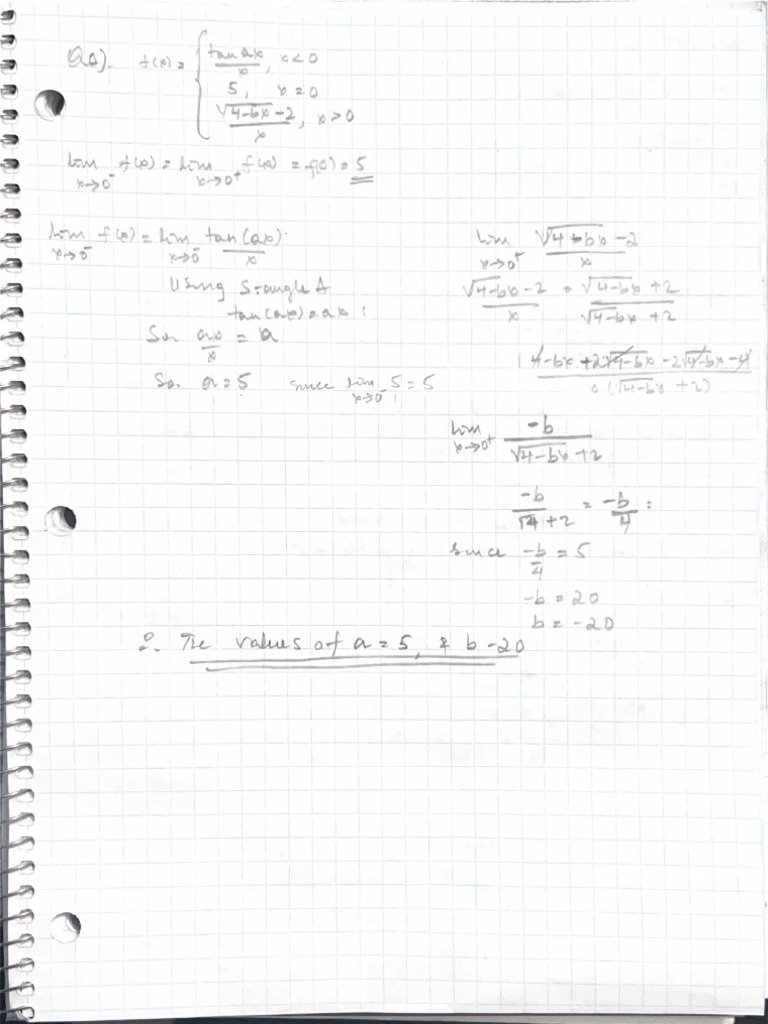 Q2). f(x) = { tan ax / x, x<0
5, x=0
√4-bx -2 / x, x>0
lim x→0⁻ f(x) = lim x→0⁺ f(x) = f(0) = 5
lim x→0⁻ f(x) = lim x→0⁻ tan(ax) / x
Using S. angle A
tan(ax) = ax
So ax / x = a
So a = 5 since lim x→0⁻ 5 = 5
lim x→0⁺ √4-bx -2 / x
√4-bx -2 / x = √4-bx +2 / √4-bx +2
(4-bx +2√4-bx -2√4-bx -4) / x(√4-bx +2)
lim x→0⁺ -b / √4-bx +2
-b / √4 +2 = -b / 4
since -b / 4 = 5
-b = 20
b = -20
∴ The values of a = 5, & b -20